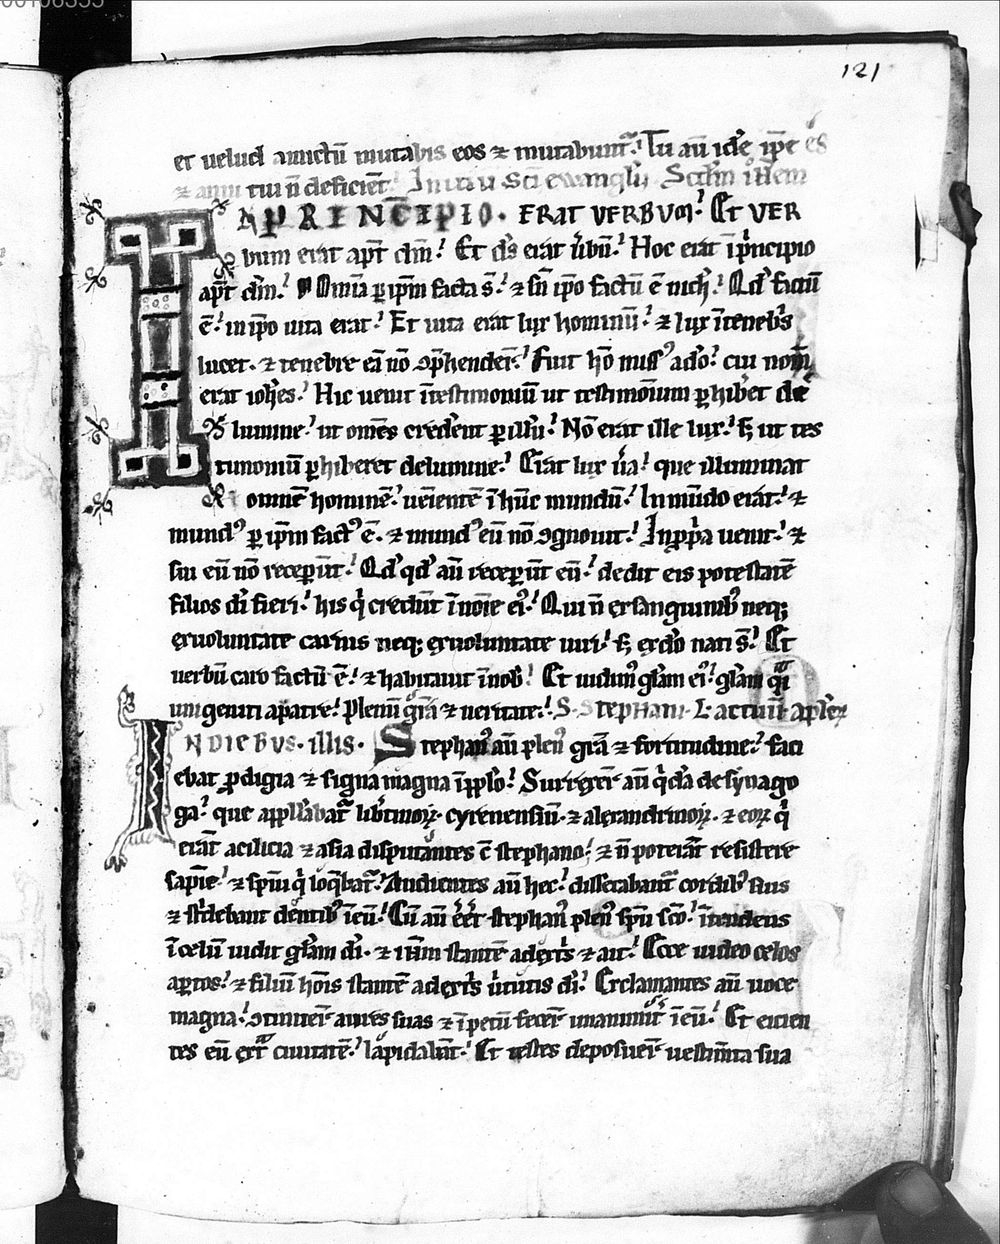 121
et velud amictū mutabis eos ⁊ mutabunt᷑. Tu aū idē ipse es
⁊ anni tui n̄ deficiēt. Initiū sc̄i ewanglii Scdm̄ ioħem
N PRINCIPIO. ERAT VERBVM. Et VER
bum erat apt̄ dm̄. Et ds̄ erat ūbū. Hoc erat ī pͥncipio
apt̄ dm̄. Omīa ꝑ ip̄m facta s̄. ⁊ sn̄ ip̄o factū ē nichͥ. Qd̓ factū
ē. in ip̄o uita erat. Et uita erat lux hominū. ⁊ lux ī tenebͥs
lucet. ⁊ tenebre eā nō ꝯp̄hendert̄. Fuit hō missꝰ a dō. cui nom̄
erat ioħes. Hic uenit ī testimoniū ut testimōium ꝑhiber̄et de
lumine. ut omēs credēnt ꝑ illū. Nō erat ille lux. s; ut tes
timoniū ꝑhiberet de lumine. Erat lux ūa. que illuminat
omnē hominē. ueīentē ī hūc mundū. In mūdo erat. ⁊
mundꝰ ꝑ ip̄m factꝰ ē. ⁊ mundꝰ eū nō ꝯgnouit. In ꝓpͥa uenit. ⁊
sui eū nō receper̄ūt. Qd̓qd̓ aū receper̄ūt eū. dedit eis potestatē
filios dī fieri. his qͥ credūt ī noīe eiꝰ. Qui n̄ ex sanguinibꝰ neqꝫ
ex uoluntate carnis neqꝫ ex uoluntate uiri. s; ex dō nati s̄. Et
uerbū caro factū ē. ⁊ habitauit ī nob̄. Et uidimꝰ gl̄am eiꝰ. gl̄am qͣi
unigeniti a patre. plenū gr̄a ⁊ ueritate. S. Stephani. L. actuū aplor̄
N DIEBVS. illis. Stephanꝰ aū plenꝰ grā ⁊ fortitudine. faci
ebat ꝓdigia ⁊ signa magna ī pplo. Surrexert̄ aū qͥdā de synago
ga. que appllabat᷑ libtinoꝝ. cyrenensiū. ⁊ alexandrinoꝝ. ⁊ eoꝝ qͥ
erāt a cilicia ⁊ asia disputantes c̄ stephano. ⁊ n̄ poterāt resistere
sapīe. ⁊ spūi qͥ loqͥbat᷑. Audientes aū hec. dissecabant᷑ cordibꝰ suis
⁊ stͥdebant dentibꝰ ī eū. Cū aū eēt stephanꝰ plenꝰ spū sc̄o. ītendens
ī celū uidit gl̄am dī. ⁊ ihm̄ stantē a dextͥs ⁊ ait. Ecce uideo celos
aꝑtos. ⁊ filiū hōis stantē a dextͥs ūtutis dī. Exclamantes aū uoce
magna. ꝯtinuert̄ aures suas ⁊ īpetū fecert̄ unanimit̄ ī eū. Et eicien
tes eū ext͛ ciuitatē. lapidabāt. Et testes deposuert̄ uestim̄ta sua